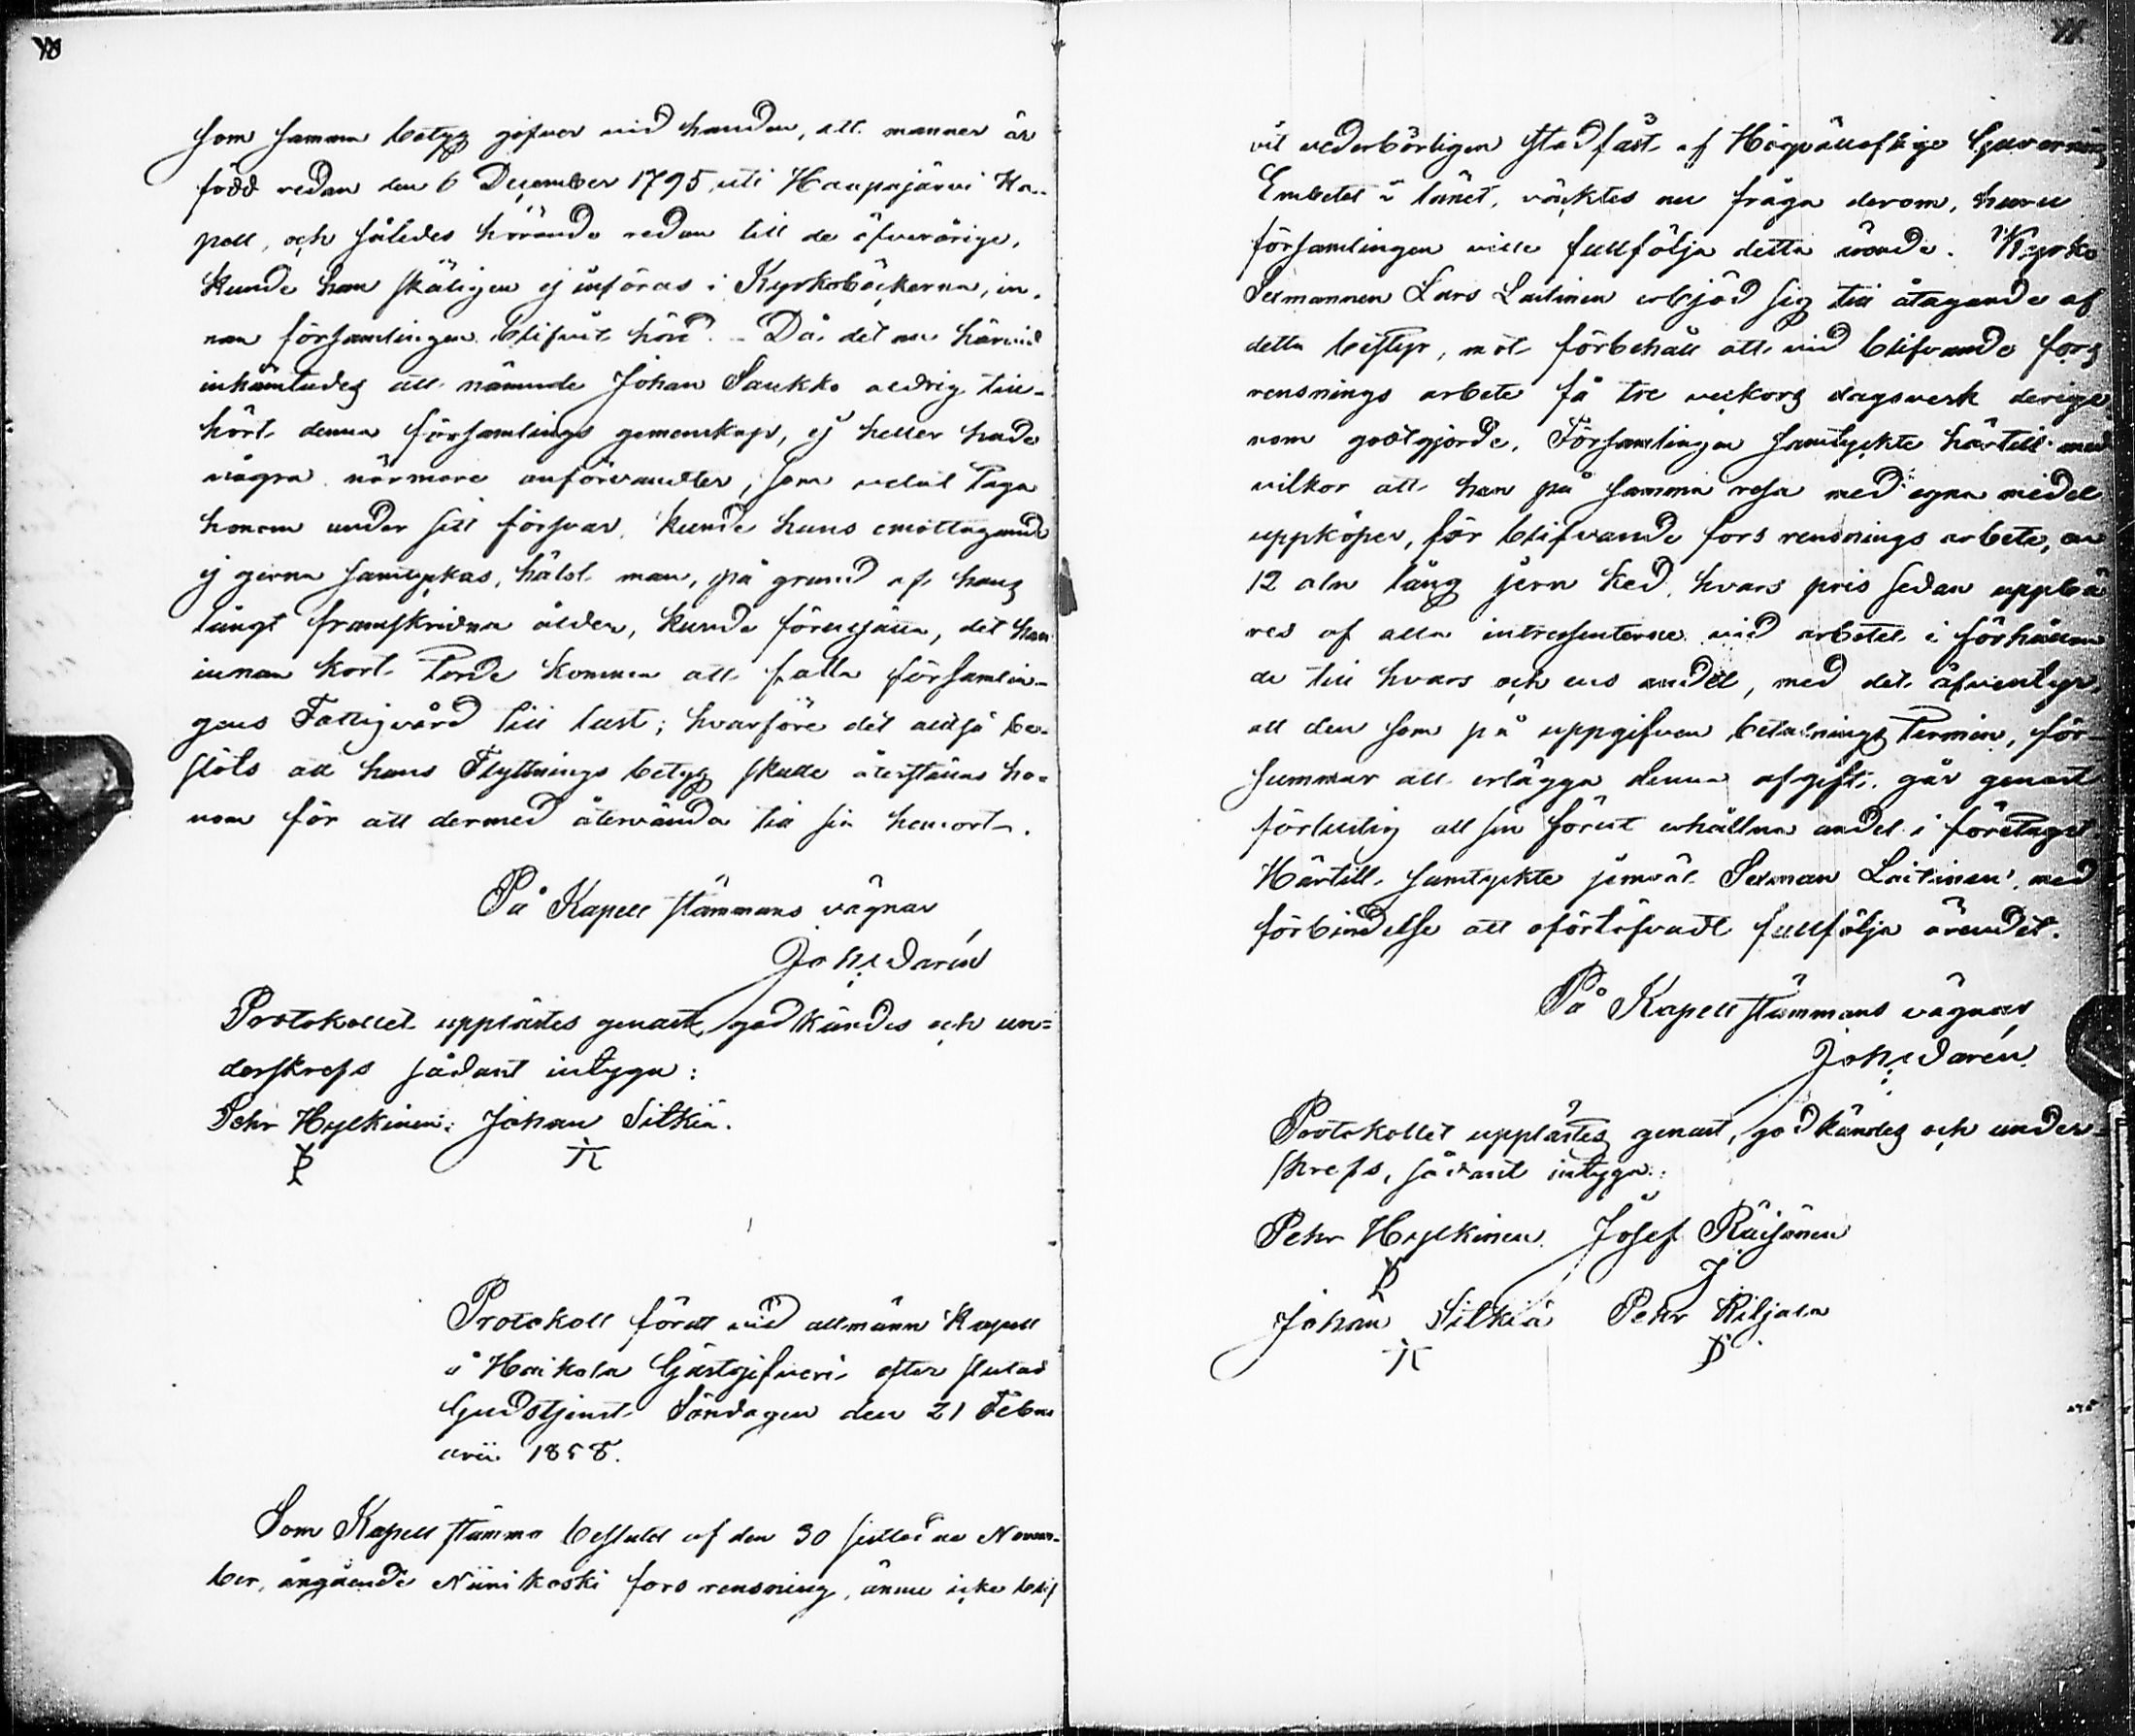 som samma betyg gifver vid handen, att mannen är
född redan den 6 December 1795 uti Haapajärvi Ka-
pell, och således hörande redan till de öfverårige,
kunde han skäligen ej införas i Kyrkoböckerna, in-
nan församlingen blifvit hörd. - Då det nu härvid
inhämtades att nämnde Johan Saukko aldrig till-
hört denna församlings gemenskap, ej heller hade
några närmare anförvandter, som velat taga
honom under sitt försvar, kunde hans emottagande
ej gerna samtyckas, hälst man, på grund af hans
långt framskridna ålder, kunde förutsätta, det han
innan kort torde komma att falla församlin-
gens Fattigvård till last; hvarföre det alltså be-
slöts att hans Flyttnings betyg skulle återställas ho-
nom för att dermed återvända till sin hemort.
På Kapell stämmans vägnar
Joh: Darén
Protokollet upplästes genast, godkändes och un=
derskrefs sådant intyga:
Pehr Hylkinen. Johan Sitkiä.
Protokoll fördt vid allmänn Kapell
å Haikola Gästgifveri efter slutad
Gudstjenst Söndagen den 21 Febru
arii 1858.
Som Kapell stämmo beslutet af den 30 sistledne Novem-
ber, angående Niinikoski fors rensning, ännu icke blif
vit vederbörligen stadfäst af Högvälloflige Guvernörs
Embetet i länet, väcktes nu fråga derom, huru
församlingen ville fullfölja detta ärende. Kyrko
Sexmannen Lars Laitinen erbjöd sig till åtagande af
detta bestyr, mot förbehåll att vid blifvande fors
rensnings arbete få tre veckors dagsverk derige-
nom godtgjorde. Församlingen samtyckte härtill med
vilkor att han på samma resa med egna medel
uppköper, för blifvande fors rensnings arbete, en
12 aln lång jern ked, hvars pris sedan uppbä
res af alla intressenterne vid arbetet i förhållan
de till hvars och ens andel, med det äfventyr,
att den som på uppgifven betalnings termin, för-
summar att erlägga denna afgift, går genast
förlustig all sin förut erhållna andel i företaget
Härtill samtyckte jemväl Sexman Laitinen, med
förbindelse att oförtöfvadt fullfölja ärendet.
På Kapell stämmans vägnar
Joh: Darén
Protokollet upplästes genast, godkändes och under=
skrefs, sådant intyga:
Pehr Hylkinen. Josef Räisänen
Johan Sitkiä Pehr Kiljala